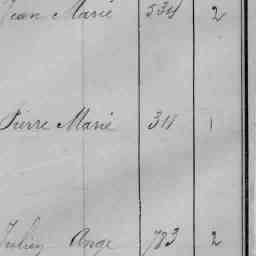 Jean Marie 534 2
Pierre Marie 311 1
Julien Ange 783 2